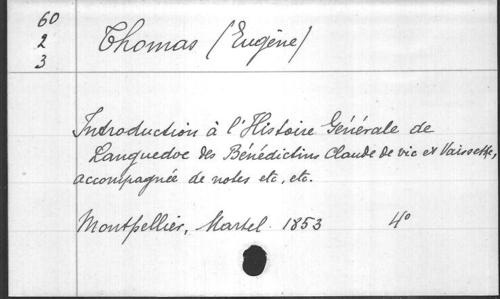 60
2
3
Thomas (Eugène)
Introduction à l'Histoire Générale de
Languedoc des Bénédictins Claude de vic et Vaissette,
accompagnée de notes etc, etc.
Montpellier, Martel. 1853 4º